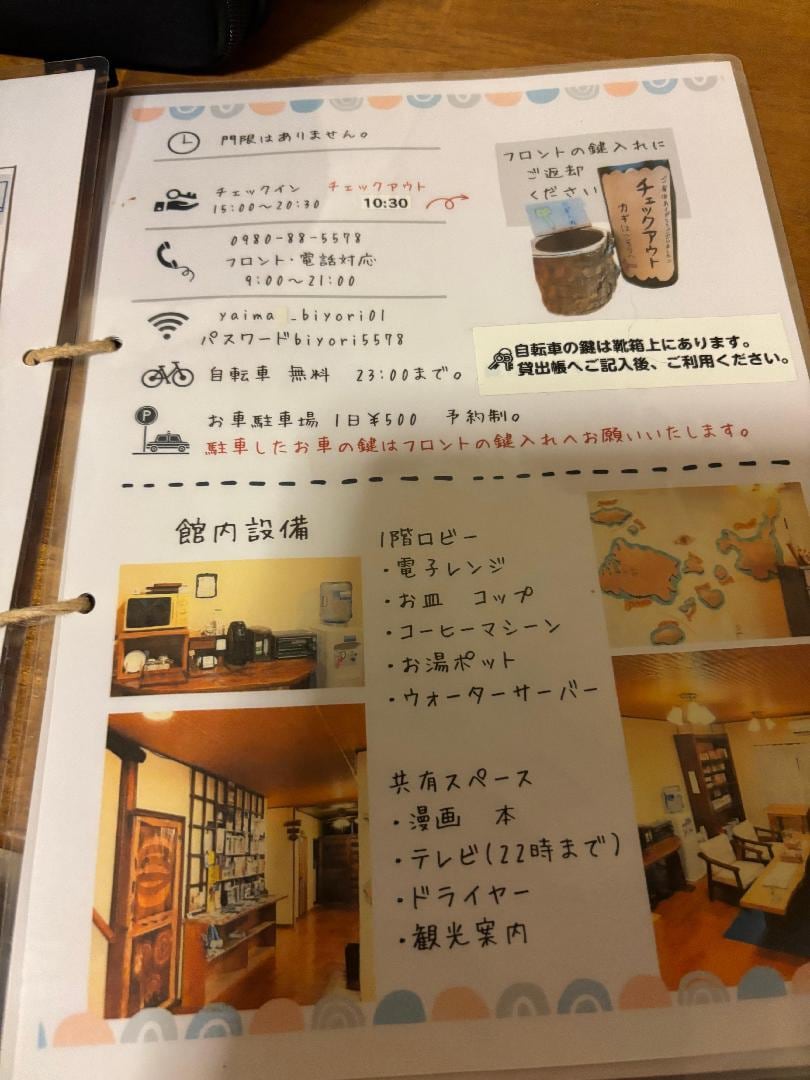 門限はありません。
チェックイン
15:00〜20:30
チェックアウト
10:30
フロントの鍵入れに
ご返却
ください
チェックアウト
0980-88-5578
フロント・電話対応
9:00〜21:00
yaima _biyori01
パスワードbiyori5578
自転車の鍵は靴箱上にあります。
貸出帳へご記入後、ご利用ください。
自転車 無料 23:00まで。
P
お車駐車場 1日¥500 予約制。
駐車したお車の鍵はフロントの鍵入れへお願いいたします。
館内設備
1階ロビー
・電子レンジ
・お皿 コップ
・コーヒーマシーン
・お湯ポット
・ウォーターサーバー
共有スペース
・漫画 本
・テレビ(22時まで)
・ドライヤー
・観光案内